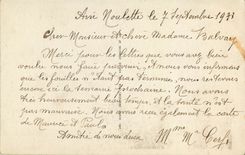 le 7 Septembre 1933
Cher Monsieur et chère Madame
Merci pour les lettres que vous avez bien
voulu nous faire parvenir. nous vous informons
que les fouilles n'étant pas terminé, nous resterons
encore ici la semaine prochaine. Nous avons
très heureusement beau temps, et la santé n'est
pas mauvaise. Nous avons reçu également la carte
de Maurice et
Amitié de nous deux